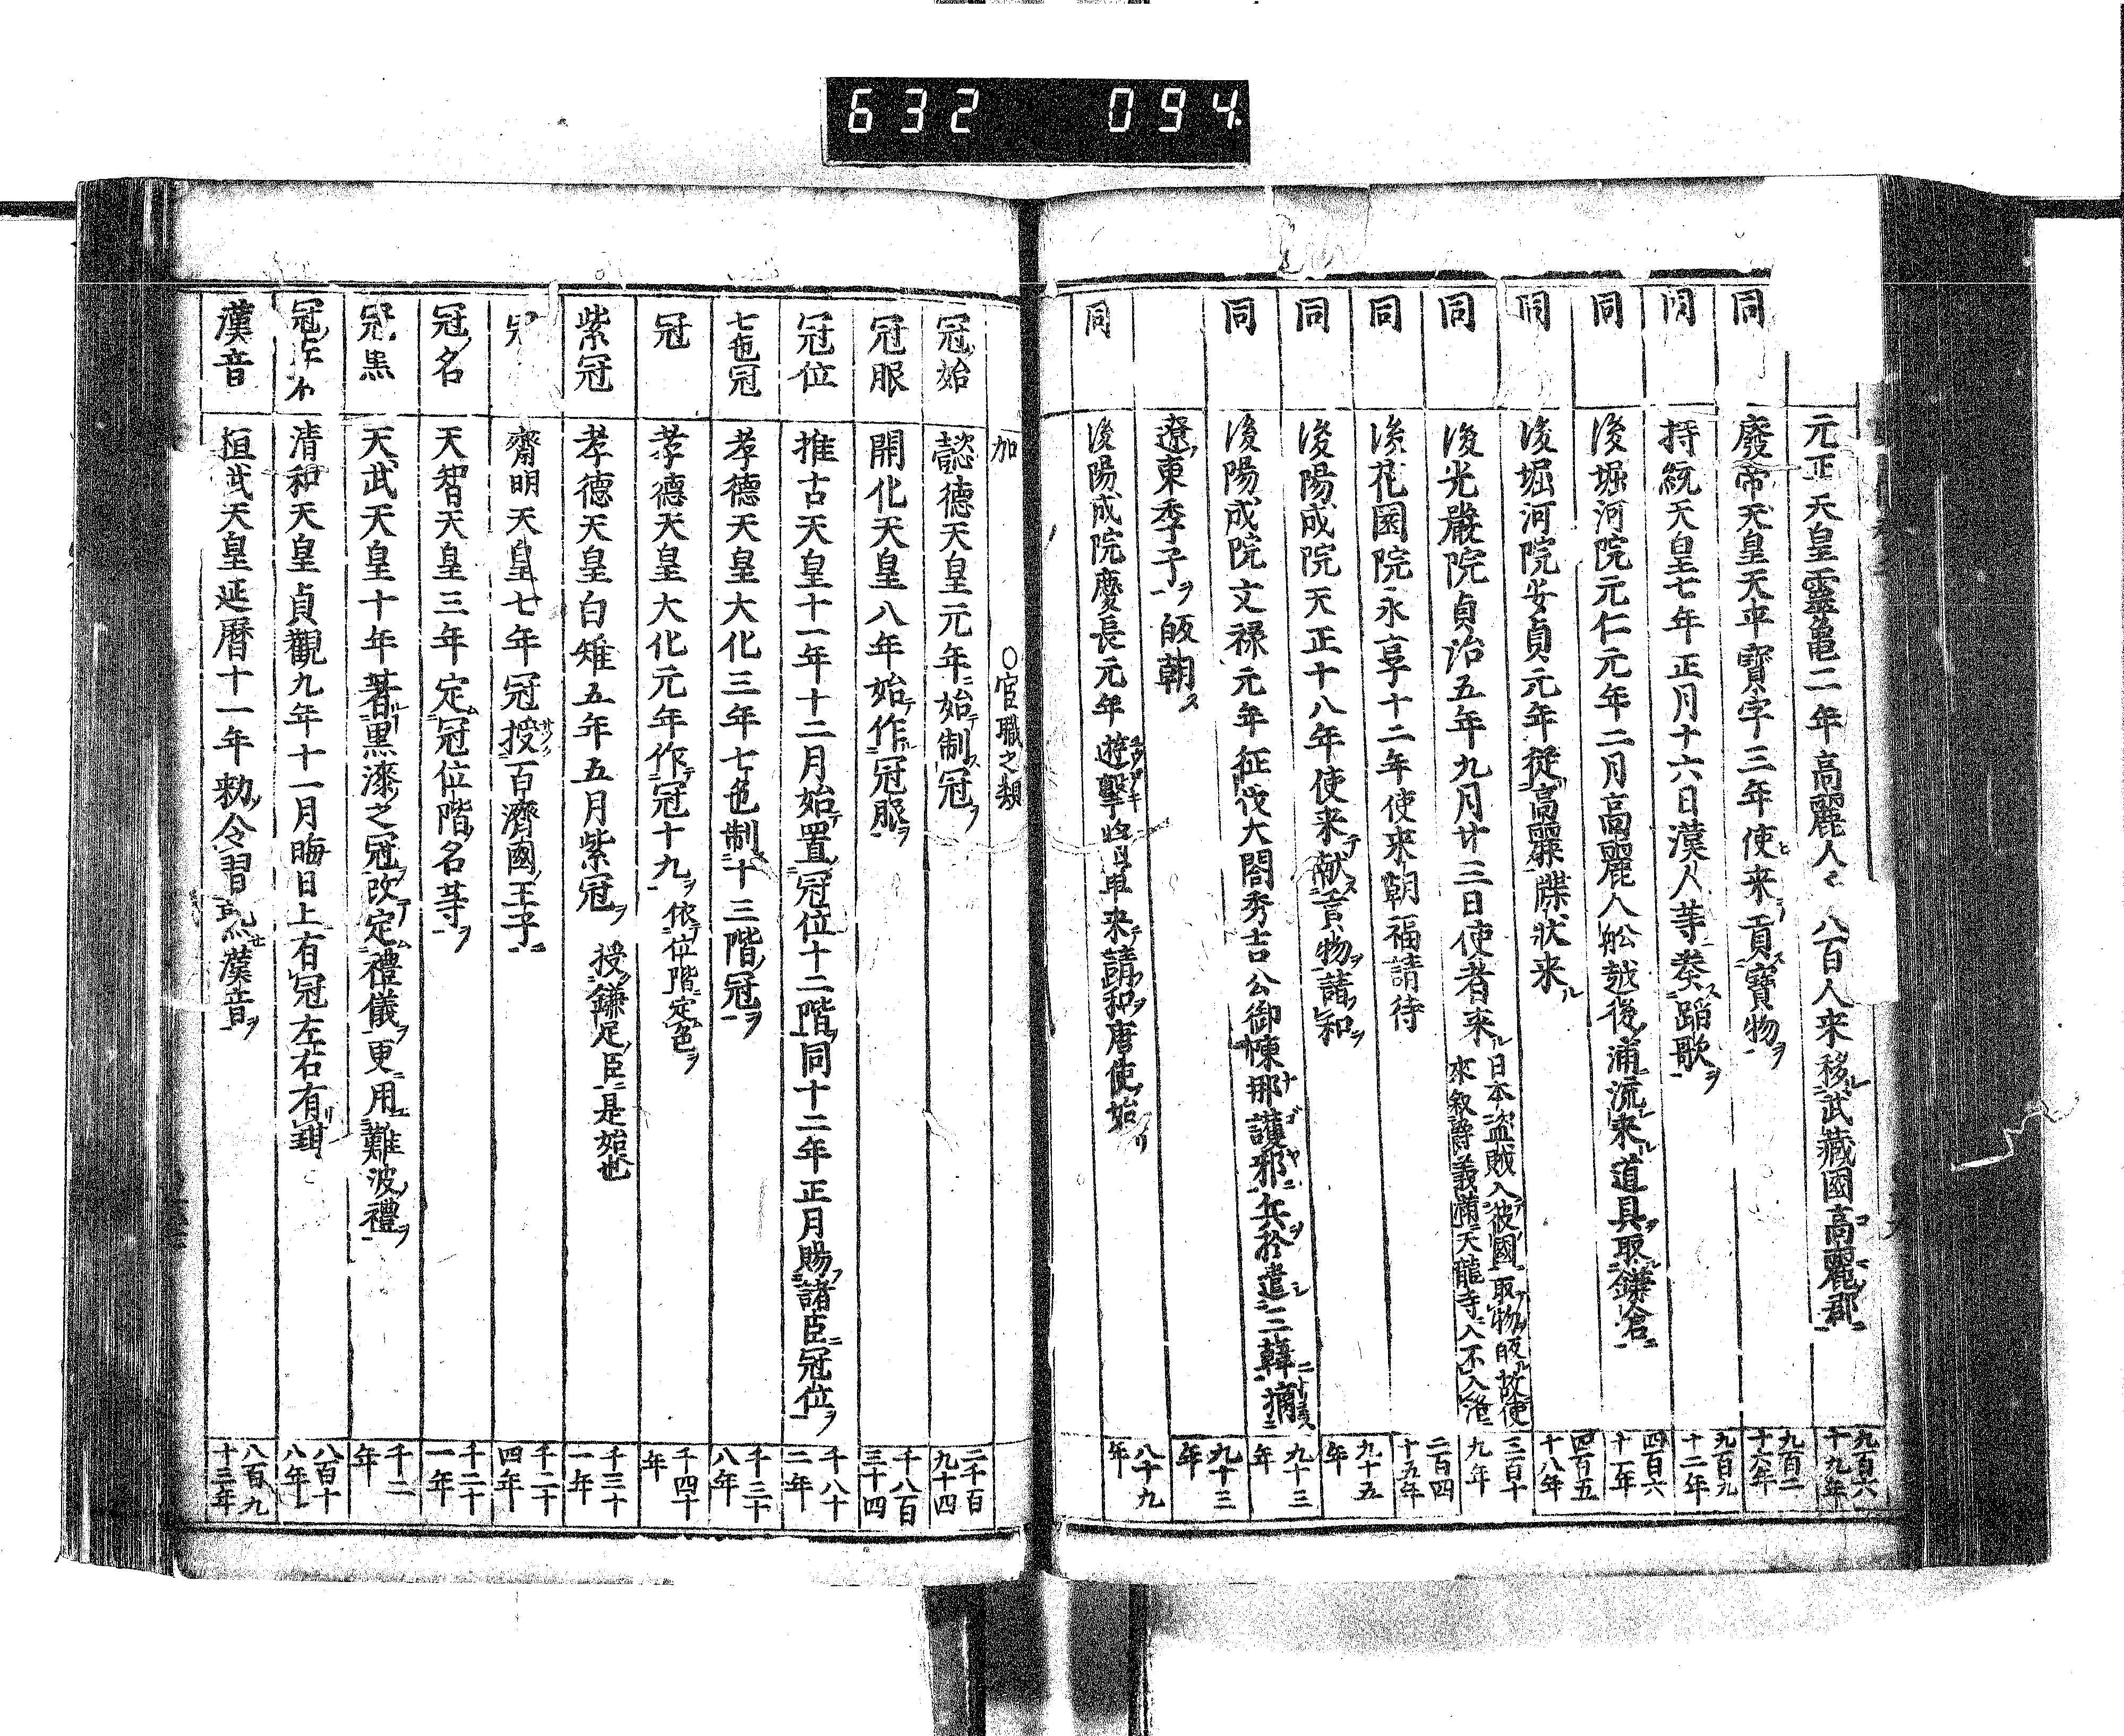 632 094
元正天皇靈亀二年高麗人 八百人来移武藏國高麗郡 九百六十九年
同 廢帝天皇天平寳字三年使来貢寳物ヲ 九百二十六年
同 持統天皇七年正月十六日漢人等奏蹈歌ヲ 九百九十二年
同 後堀河院元仁元年二月高麗人舩越後浦流来道具取鎌倉ニ 四百六十一年
同 後堀河院安貞元年従高麗牒状来ル 四百五十八年
同 後光嚴院貞治五年九月廿三日使者来 日本盗賊入彼國取物皈故使来 三百十九年
同 後花園院永享十二年使来朝福請待 二百四十五年
同 後陽成院天正十八年使来献貢物請和ヲ 九十五年
同 後陽成院文禄元年征伐大閤秀吉公御陳那護邪兵於遣三韓 九十三年
遼東季子ヲ皈朝ス 九十三年
同 後陽成院慶長元年遊撃将軍来請和唐使始 八十九年
加 ○官職之類
冠始 懿德天皇元年始制冠ヲ 二千百九十四
冠服 開化天皇八年始作冠服ヲ 千八百三十四
冠位 推古天皇十一年十二月始置冠位十二階同十二年正月賜諸臣冠位ヲ 千八十二年
七色冠 孝德天皇大化三年七色制十三階冠ヲ 千三十八年
冠 孝德天皇大化元年作冠十九ヲ依位階定色ヲ 千四十年
紫冠 孝德天皇白雉五年五月紫冠ヲ授鎌足臣是始也 千三十一年
齋明天皇七年冠授百濟國王子ニ 千二十四年
冠名 天智天皇三年定冠位階名等ヲ 千二十一年
冠黒 天武天皇十年著黒漆之冠改定禮儀ヲ更用難波禮ヲ 千二年
冠 清和天皇貞觀九年十一月晦日上有冠左右有珥 八百十八年
漢音 桓武天皇延暦十一年勅令習 漢音ヲ 八百九十三年